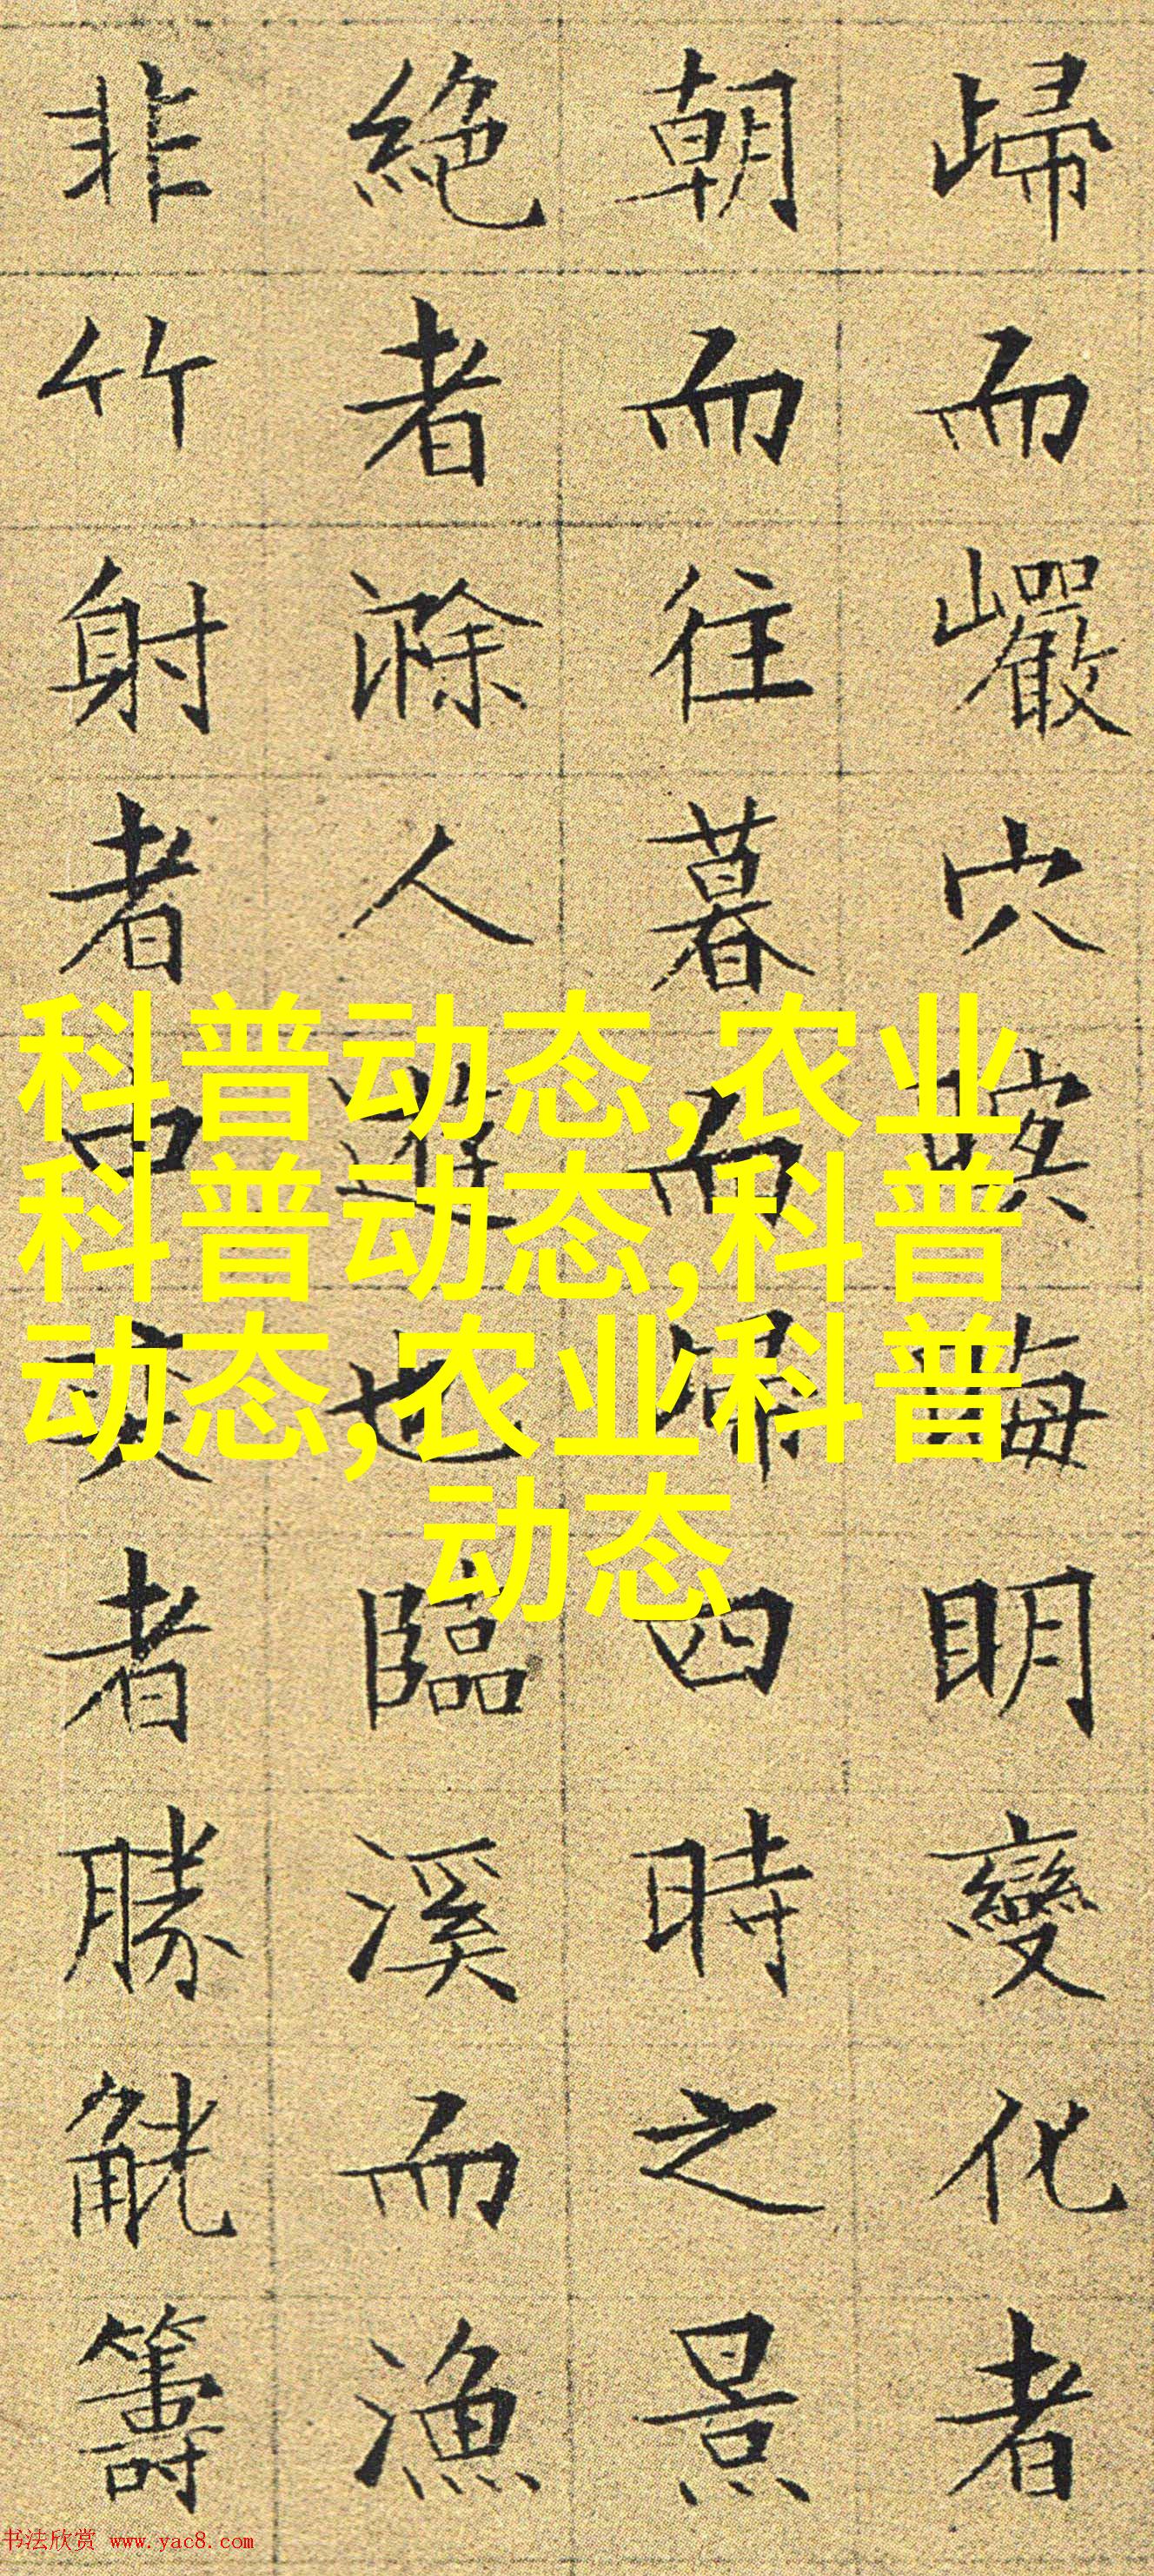 歸而巖穴暝晦明變化者
朝而往暮而歸四時之景
絕者滁人遊也臨溪而漁
非竹射者中奕者勝觥籌
科普动态,农业
科普动态,科普
动态,农业科普
动态
书法欣赏 www.yac8.com